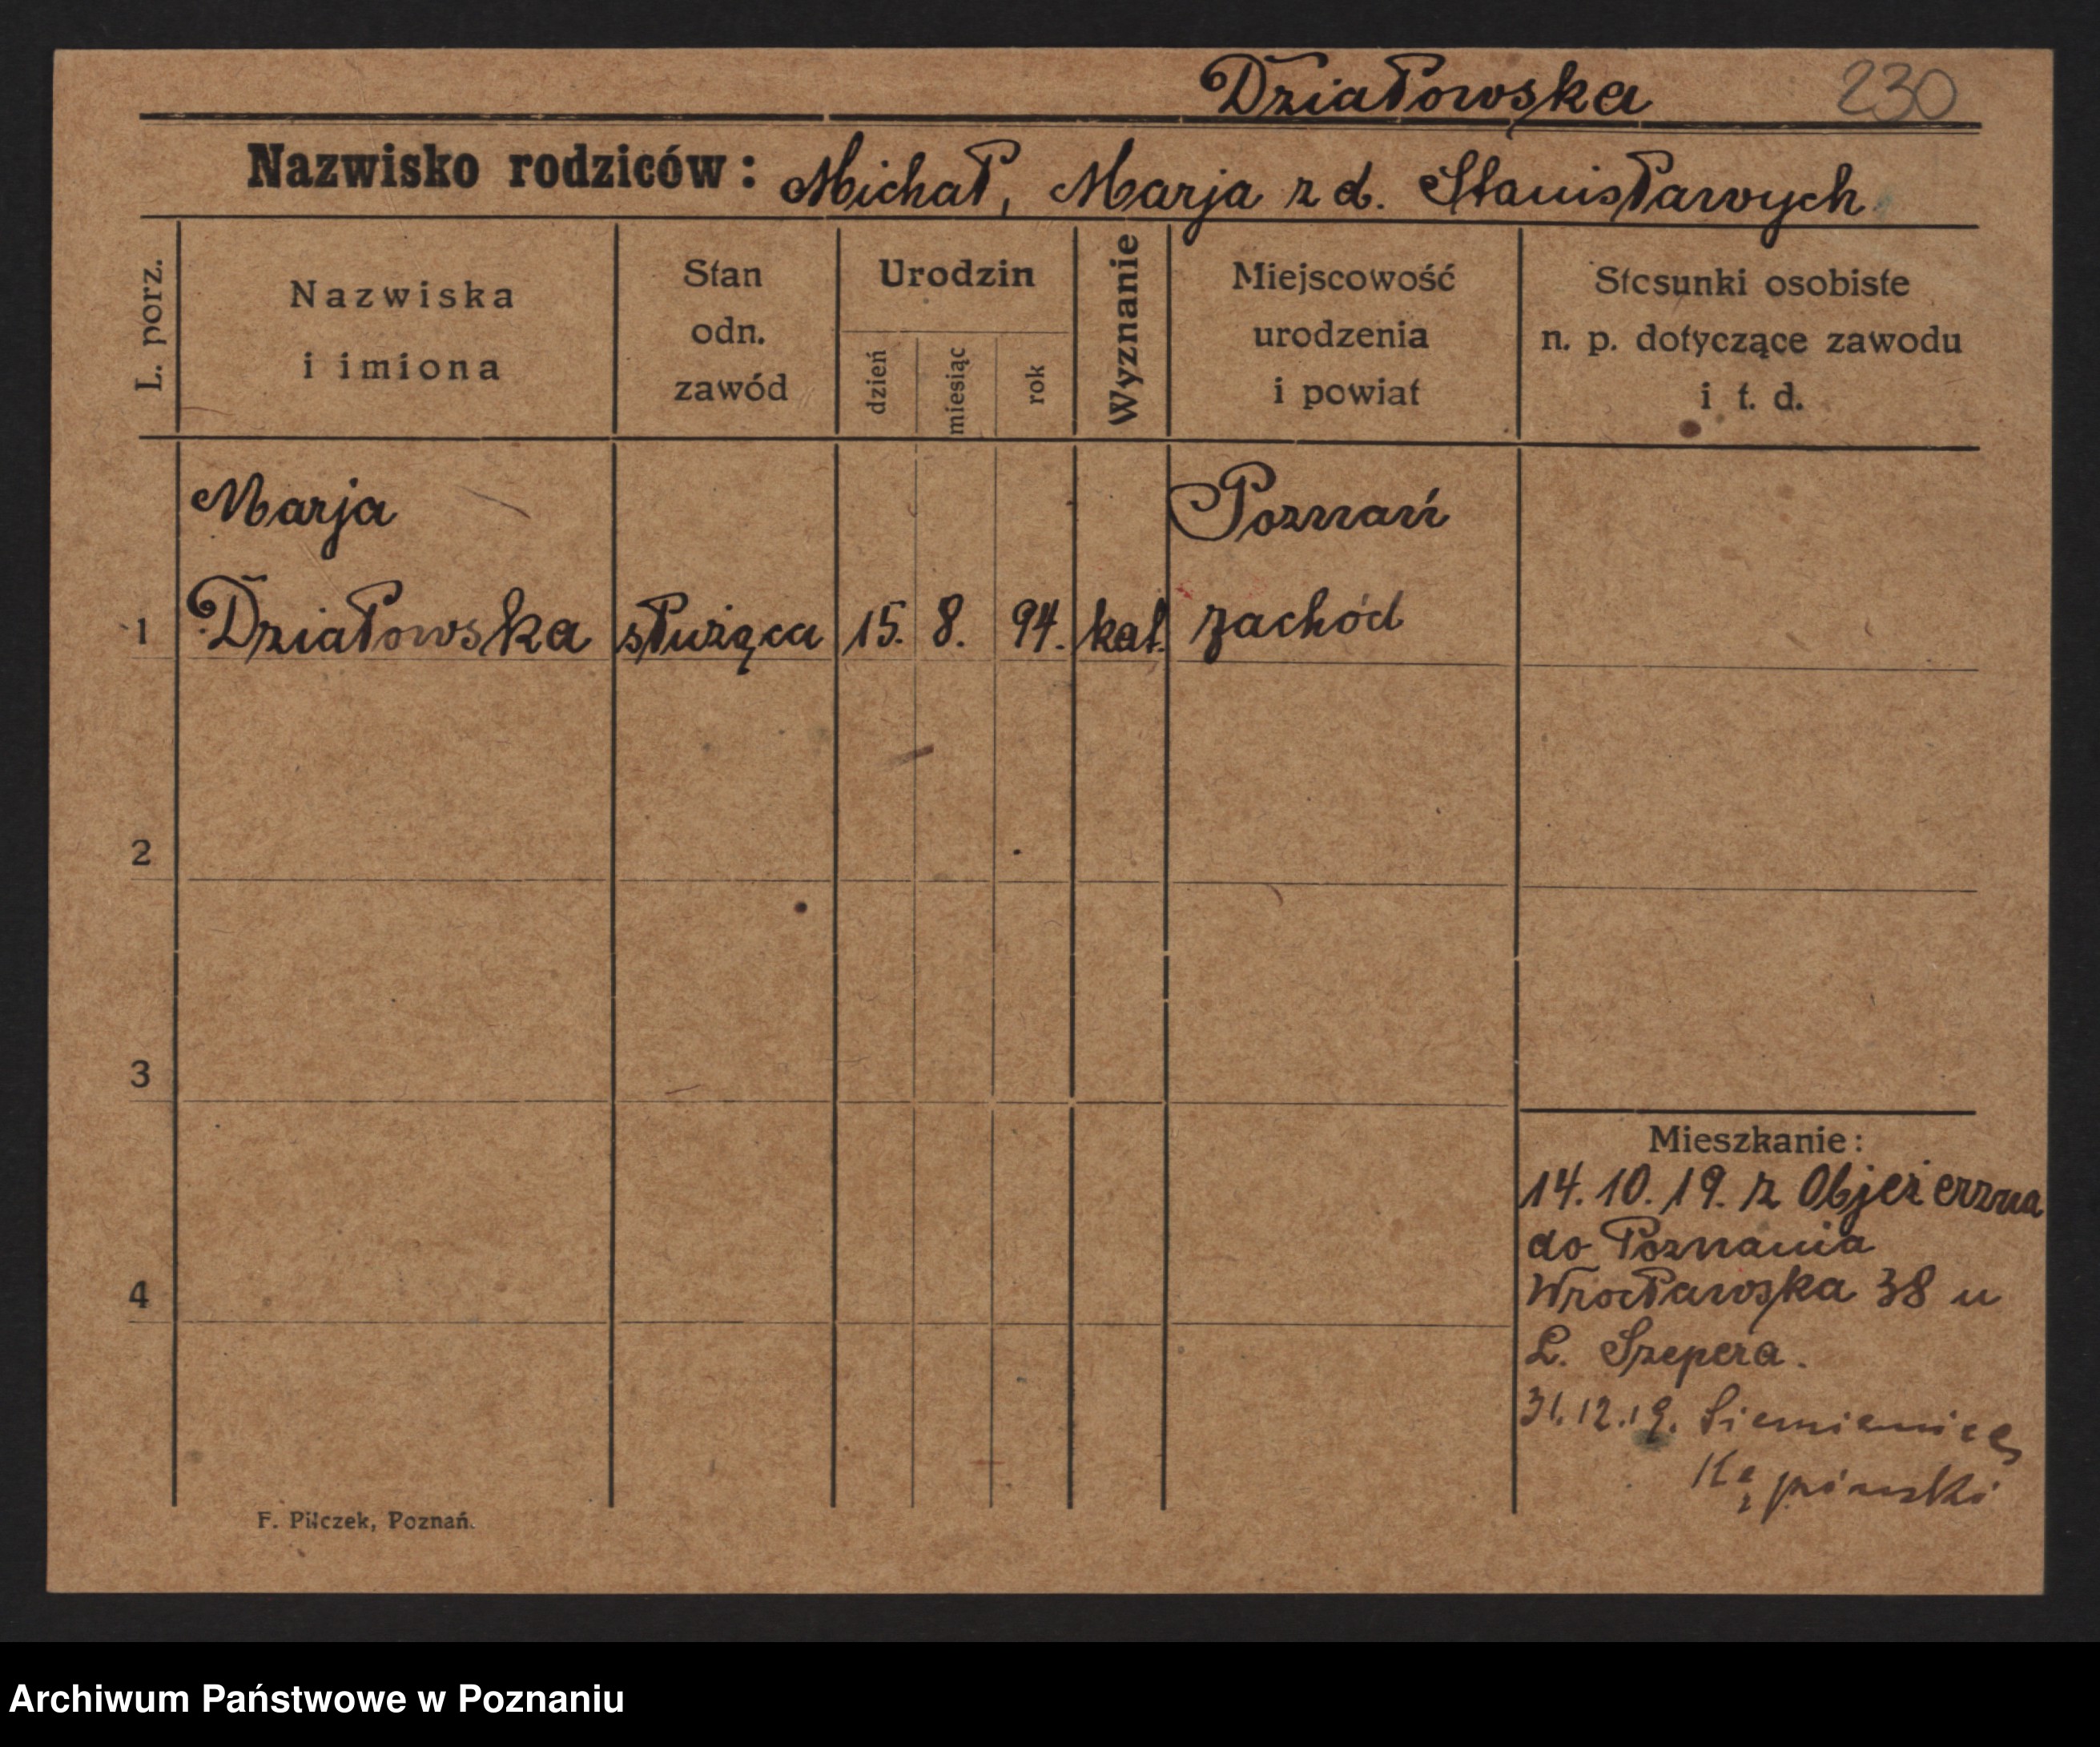 Działowska 230
Nazwisko rodziców: Michał, Marja z d. Stanisławych
L. porz.
Nazwiska
i imiona
Stan
odn.
zawód
Urodzin
dzień
miesiąc
rok
Wyznanie
Miejscowość
urodzenia
i powiat
Stosunki osobiste
n. p. dotyczące zawodu
i t. d.
Marja Poznań
1 Działowska służąca 15. 8. 94. kat. zachód
2
3
4
Mieszkanie:
14.10.19. z Objezierzna
do Poznania
Wrocławska 38 u
L. Szepera.
31.12.19. Siemianice
Kępiński
F. Pilczek, Poznań.
Archiwum Państwowe w Poznaniu